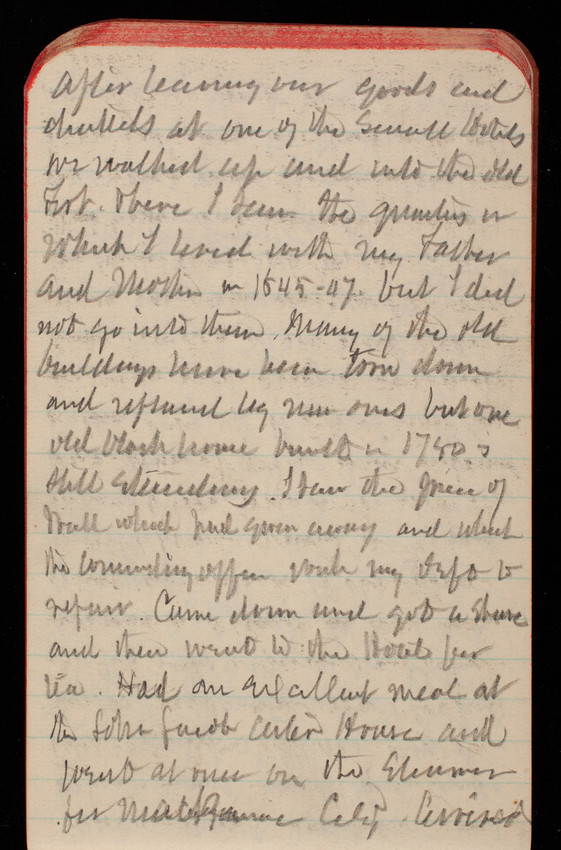 After leaving our goods and
chattels at one of the small Hotels
we walked up and into the old
Fort. There I saw the quarters in
which I lived with my Father
and Mother in 1845-47. but I did
not go into them. Many of the old
buildings have been torn down
and replaced by new ones but one
old block house built in 1780 is
still standing. I saw the piece of
Wall which had given away and which
the commanding officer wants my Dept to
repair. Came down and got a shave
and then went to the Hotel for
tea. Had an excellent meal at
the John Jacob Astor House and
went at once on the Steamer
for Mackinac City. Arrived